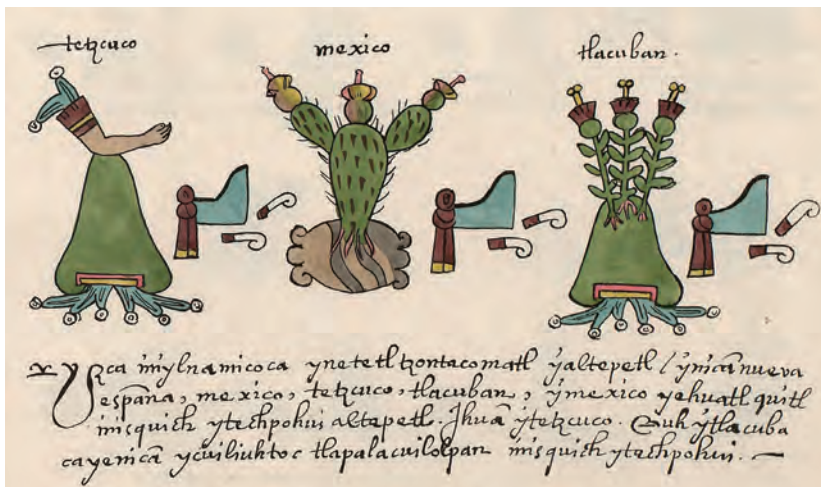 tetzcuco
mexico
tlacuban.
Yzca inilnamicoca ynetetl tzontecomatl yaltepetl / ynican nueva
españa, mexico, tetzcuco, tlacuban, ymexico yehuatl quitl
inisquich ytechpohui altepetl. Ihuā ytetzcuco. Euh ytlacuba
ca yenicā ycuiliuhtoc tlapalacuilolpan inisquich ytechpohui.